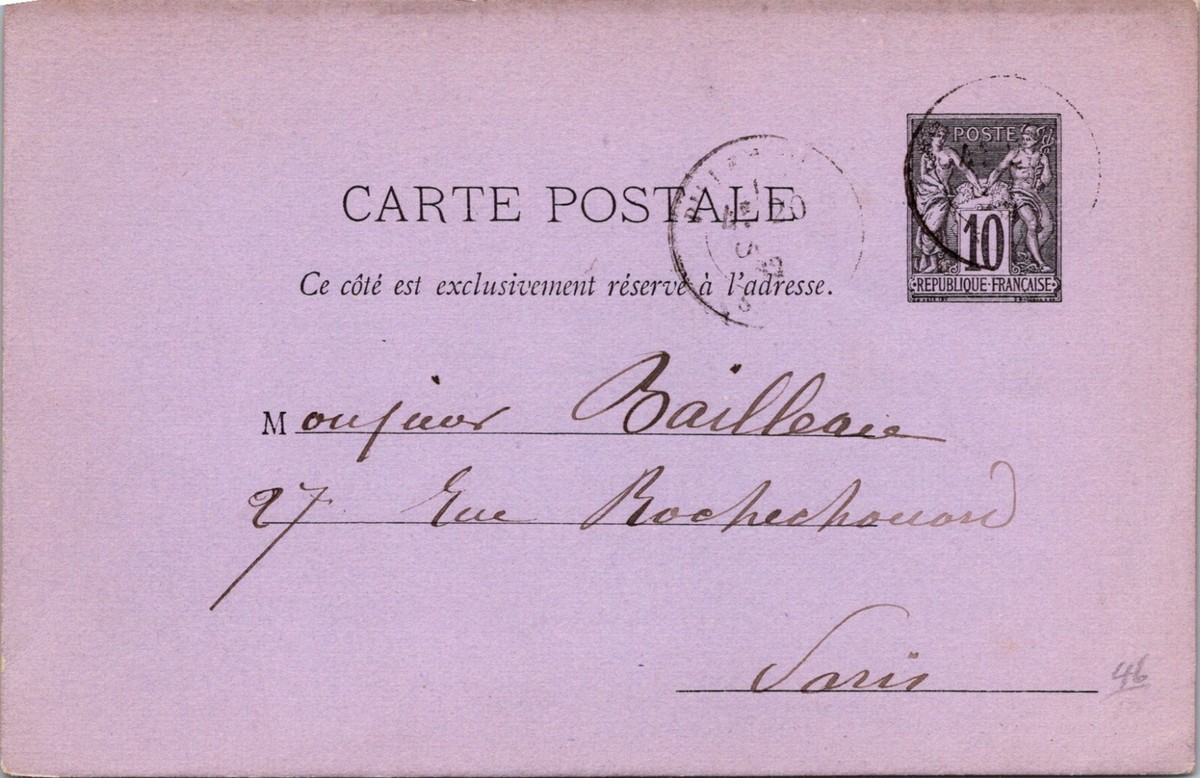 POSTE
10
REPUBLIQUE·FRANÇAISE
CARTE POSTALE
Ce côté est exclusivement réservé à l'adresse.
Monsieur Bailleau
27 Rue Rochechouard
Paris
46